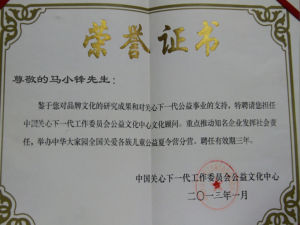 荣誉证书
尊敬的马小锋先生：
鉴于您对品牌文化的研究成果和对关心下一代公益事业的支持，特聘请您担任
中国关心下一代工作委员会公益文化中心文化顾问。重点推动知名企业发挥社会责
任，举办中华大家园全国关爱各族儿童公益夏令营分营。聘任有效期三年。
中国关心下一代工作委员会公益文化中心
二〇一三年一月